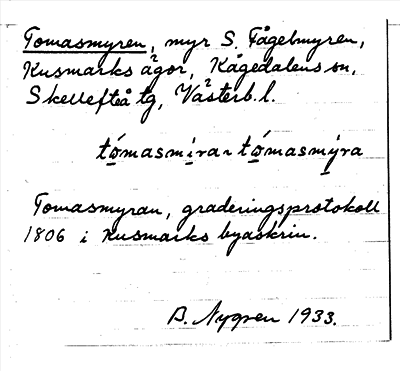 Tomasmyren, myr S. Fågelmyren,
Kusmarks ägor, Kågedalens sn,
Skellefteå tg, Västerb. l.
tómasmira~ tómasmýra
Tomasmyran, graderingsprotokoll
1806 i Kusmarks byaskrin.
B. Nygren 1933.